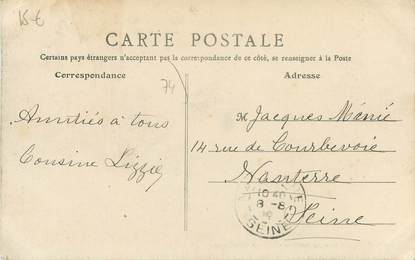 15 €
CARTE POSTALE
Certains pays étrangers n'acceptant pas la correspondance de ce côté, se renseigner à la Poste
Correspondance
Adresse
74
Amitiés à tous
Cousine Lizzie
M Jacques Ménié
14 rue de Courbevoie
Nanterre
Seine
10
8 - 8
SEINE